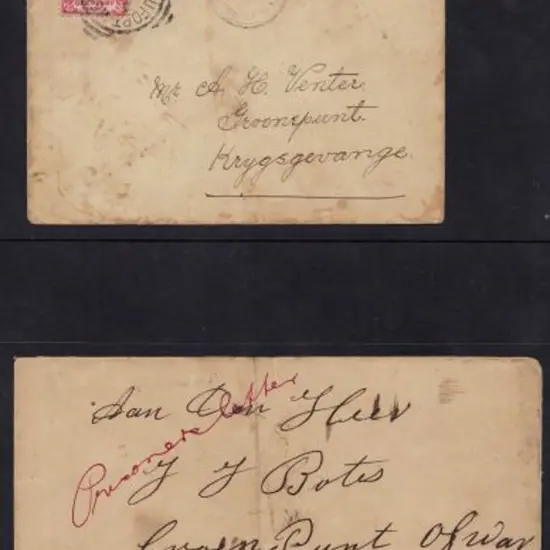 UFORT
Mr A. H. Venter.
Groenepunt.
Krygsgevange.
Prisoners letter
Aan Den Heer
J J Botes
Groen Punt Of War